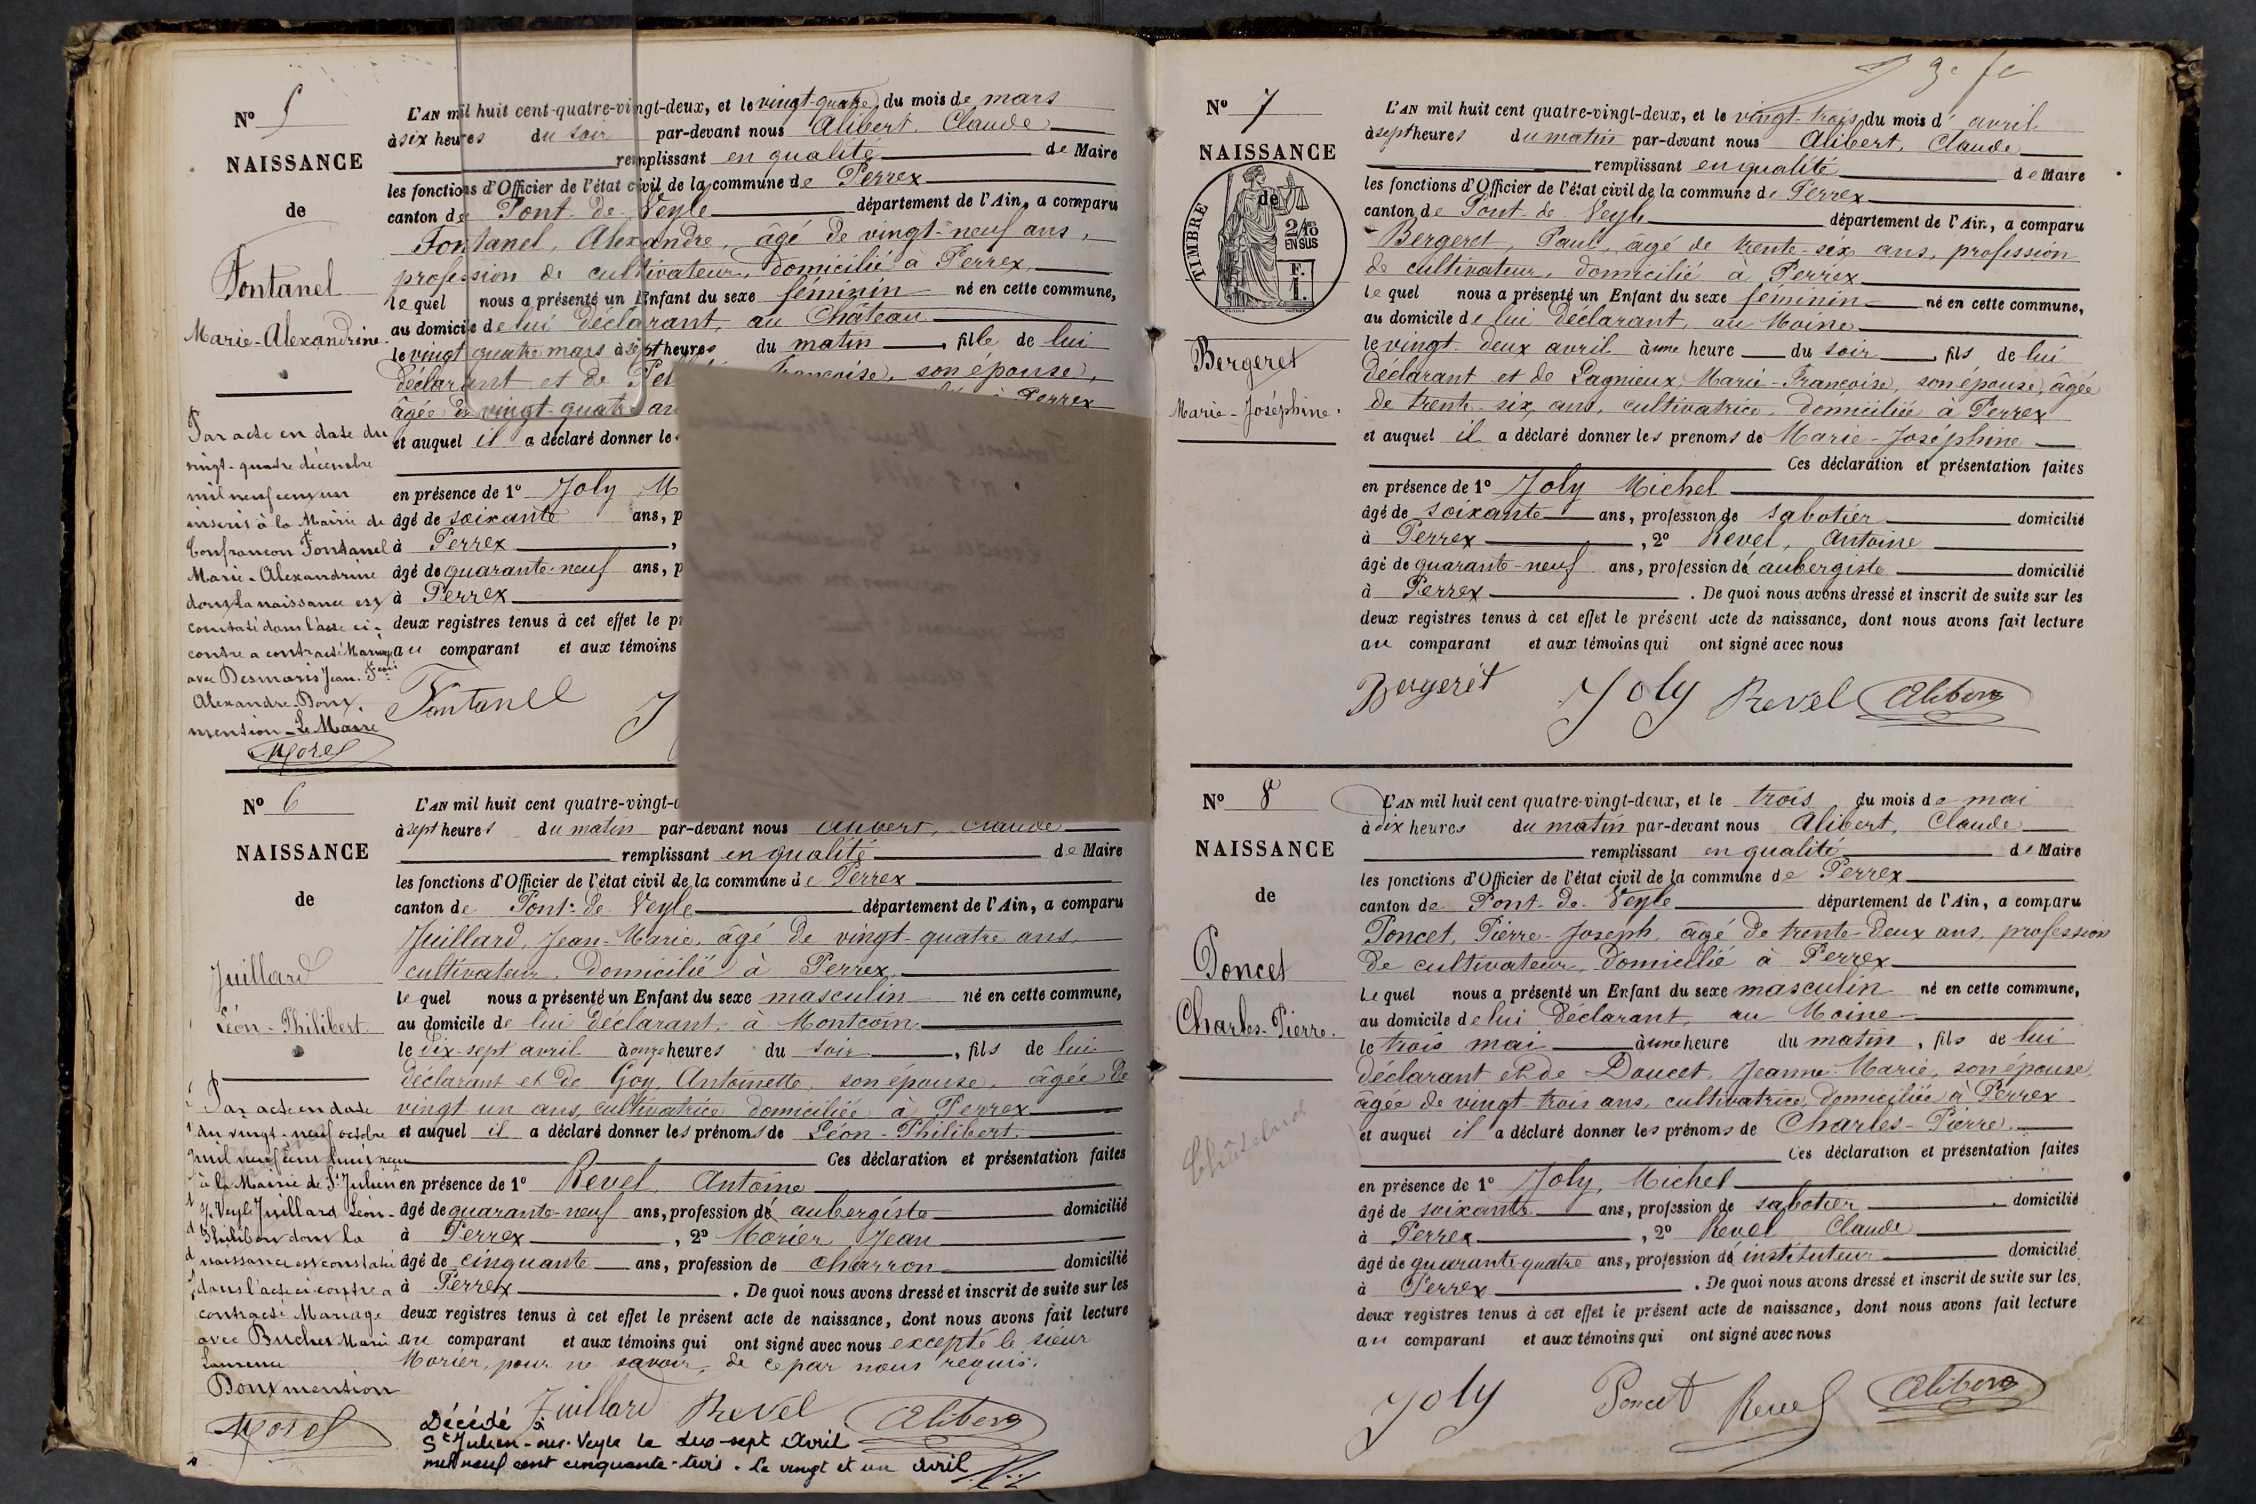 N° 5
NAISSANCE
de
Fontanel
Marie-Alexandrine
Par acte en date du
vingt-quatre décembre
mil neuf cent un
inscrit à la Mairie de
Confrançon Fontanel
Marie-Alexandrine
dont la naissance est
constaté dans l'acte ci-
contre a contracté Mariage
avec Desmaris Jean-
Alexandre. Dont
mention. Le Maire
Morel
L'AN mil huit cent-quatre-vingt-deux, et le vingt-quatre, du mois de mars
à six heures du soir par-devant nous Alibert, Claude
remplissant en qualité de Maire
les fonctions d'Officier de l'état civil de la commune de Perrex
canton de Pont-de-Veyle département de l'Ain, a comparu
Fontanel, Alexandre, âgé de vingt-neuf ans,
profession de cultivateur, domicilié à Perrex,
lequel nous a présenté un Enfant du sexe féminin né en cette commune,
au domicile de lui déclarant, au Château
le vingt quatre mars à sept heures du matin, fille de lui
déclarant et de Françoise, son épouse,
âgée de vingt-quatre ans à Perrex
et auquel il a déclaré donner le
en présence de 1° Joly M
âgé de soixante ans, p
à Perrex,
âgé de quarante-neuf ans, p
à Perrex
deux registres tenus à cet effet le pr
au comparant et aux témoins
Fontanel J
N° 6
NAISSANCE
de
Juillard
Léon-Philibert
Par acte en date
du vingt-neuf octobre
mil neuf cent huit
à la Mairie de St Julien
s/ Veyle Juillard Léon-
Philibert dont la
naissance est constaté
dans l'acte ci-contre a
contracté Mariage
avec Bucher Marie
Laurence
Dont mention
Morel
L'AN mil huit cent quatre-vingt-d
à sept heures du matin par-devant nous Alibert, Claude
remplissant en qualité de Maire
les fonctions d'Officier de l'état civil de la commune de Perrex
canton de Pont-de-Veyle département de l'Ain, a comparu
Juillard, Jean-Marie, âgé de vingt-quatre ans,
cultivateur, domicilié à Perrex,
lequel nous a présenté un Enfant du sexe masculin né en cette commune,
au domicile de lui déclarant, à Montcoin
le dix-sept avril à onze heures du soir, fils de lui
déclarant et de Goy, Antoinette, son épouse, âgée de
vingt un ans, cultivatrice domiciliée à Perrex
et auquel il a déclaré donner les prénoms de Léon-Philibert.
Ces déclaration et présentation faites
en présence de 1° Revel, Antoine
âgé de quarante-neuf ans, profession de aubergiste domicilié
à Perrex, 2° Morier, Jean
âgé de cinquante ans, profession de charron domicilié
à Perrex. De quoi nous avons dressé et inscrit de suite sur les
deux registres tenus à cet effet le présent acte de naissance, dont nous avons fait lecture
au comparant et aux témoins qui ont signé avec nous excepté le sieur
Morier, pour ne savoir, de ce par nous requis.
Juillard Revel Alibert
Décédé à
St Julien-sur-Veyle le dix-sept Avril
mil neuf cent cinquante-trois. Le vingt et un Avril
N° 7
NAISSANCE
de
TIMBRE
2/10 EN SUS
F. 1.
Bergeret
Marie-Joséphine.
L'AN mil huit cent quatre-vingt-deux, et le vingt-trois, du mois d'avril
à sept heures du matin par-devant nous Alibert, Claude
remplissant en qualité de Maire
les fonctions d'Officier de l'état civil de la commune de Perrex
canton de Pont-de-Veyle département de l'Ain, a comparu
Bergeret, Paul, âgé de trente-six ans, profession
de cultivateur, domicilié à Perrex
lequel nous a présenté un Enfant du sexe féminin né en cette commune,
au domicile de lui déclarant, au Moine
le vingt-deux avril à une heure du soir, fils de lui
déclarant et de Pagnieux, Marie-Françoise, son épouse, âgée
de trente-six ans, cultivatrice, domiciliée à Perrex
et auquel il a déclaré donner les prenoms de Marie-Joséphine
Ces déclaration et présentation faites
en présence de 1° Joly Michel
âgé de soixante ans, profession de sabotier domicilié
à Perrex, 2° Revel, Antoine
âgé de quarante-neuf ans, profession de aubergiste domicilié
à Perrex. De quoi nous avons dressé et inscrit de suite sur les
deux registres tenus à cet effet le présent acte de naissance, dont nous avons fait lecture
au comparant et aux témoins qui ont signé avec nous
Bergeret Joly Revel Alibert
N° 8
NAISSANCE
de
Poncet
Charles-Pierre.
Châtelard
L'AN mil huit cent quatre-vingt-deux, et le trois du mois de mai
à dix heures du matin par-devant nous Alibert, Claude
remplissant en qualité de Maire
les fonctions d'Officier de l'état civil de la commune de Perrex
canton de Pont-de-Veyle département de l'Ain, a comparu
Poncet, Pierre-Joseph, âgé de trente-deux ans, profession
de cultivateur, domicilié à Perrex
lequel nous a présenté un Enfant du sexe masculin né en cette commune,
au domicile de lui déclarant, au Moine
le trois mai à une heure du matin, fils de lui
déclarant et de Doucet, Jeanne-Marie, son épouse,
âgée de vingt trois ans, cultivatrice, domiciliée à Perrex
et auquel il a déclaré donner les prénoms de Charles-Pierre.
Ces déclaration et présentation faites
en présence de 1° Joly, Michel
âgé de soixante ans, profession de sabotier domicilié
à Perrex, 2° Revel Claude
âgé de quarante-quatre ans, profession de instituteur domicilié
à Perrex. De quoi nous avons dressé et inscrit de suite sur les
deux registres tenus à cet effet le présent acte de naissance, dont nous avons fait lecture
au comparant et aux témoins qui ont signé avec nous
Joly Poncet Revel Alibert